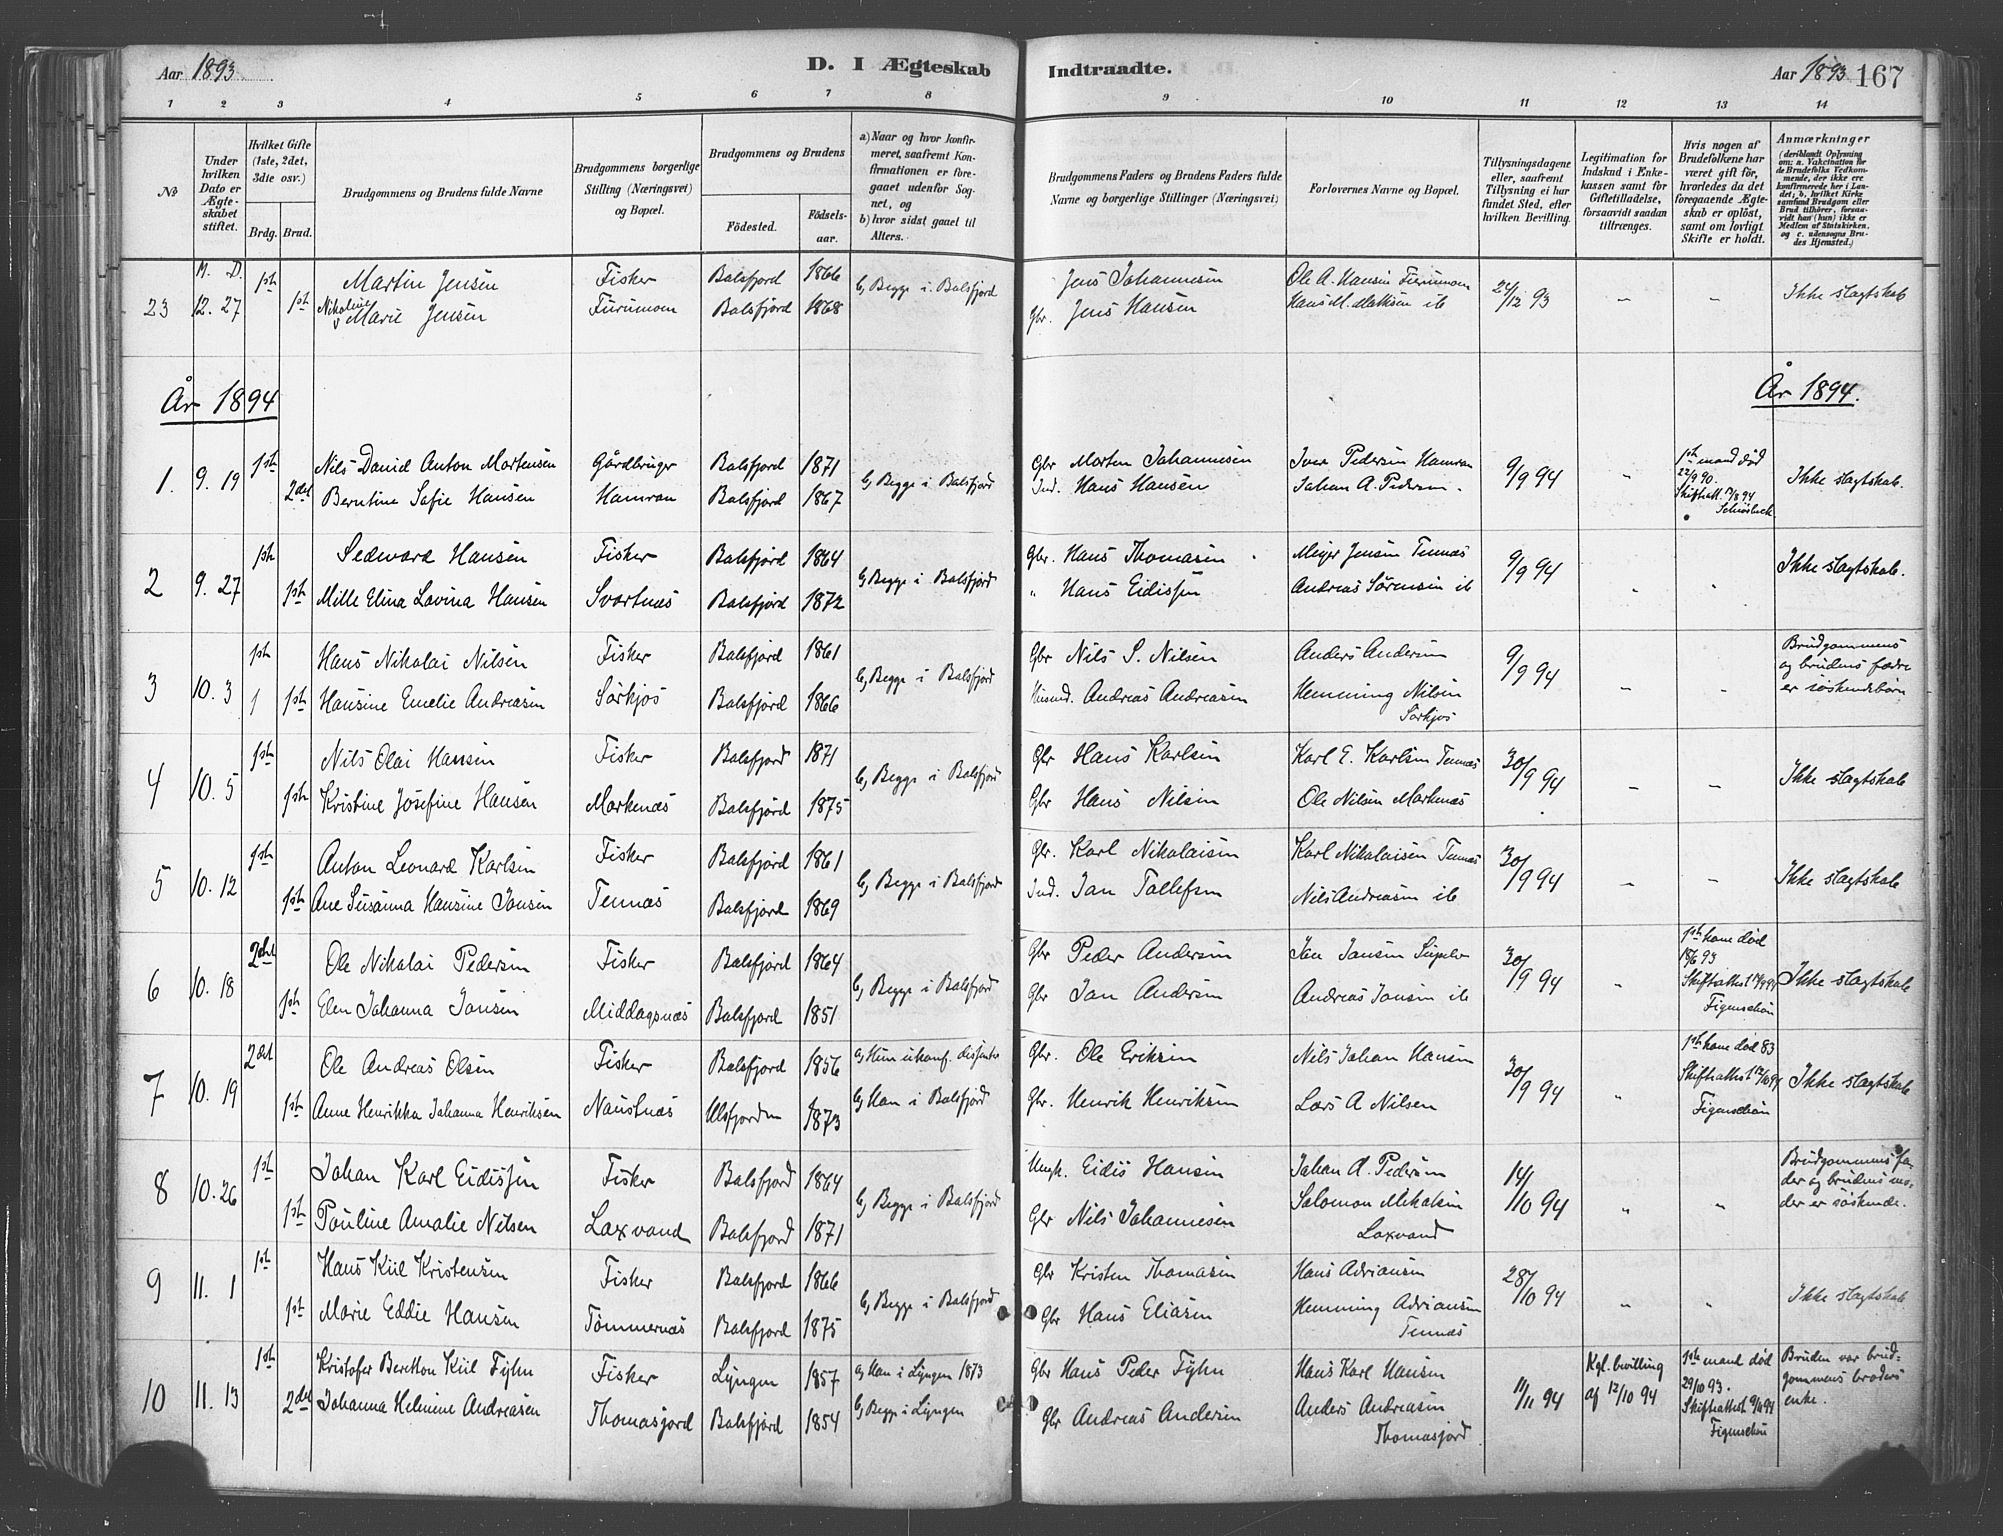 Aar 1893
D. I Ægteskab Indtraadte.
Aar 1893 167
1 2 3 4 5 6 7 8 9 10 11 12 13 14
No
Under hvilken Dato er Ægteskabet stiftet.
Hvilket Gifte (1ste, 2det, 3die osv.)
Brdg. Brud.
Brudgommens og Brudens fulde Navne
Brudgommens borgerlige Stilling (Næringsvei) og Bopæl.
Brudgommens og Brudens
Fødested.
Fødselsaar.
a) Naar og hvor konfirmeret, saafremt Konfirmationen er foregaaet udenfor Sognet, og
b) hvor sidst gaaet til Alters.
Brudgommens Faders og Brudens Faders fulde Navne og borgerlige Stillinger (Næringsvei)
Forlovernes Navne og Bopæl.
Tillysningsdagene eller, saafremt Tillysning ei har fundet Sted, efter hvilken Bevilling.
Legitimation for Indskud i Enkekassen samt for Giftetilladelse, forsaavidt saadan tiltrænges.
Hvis nogen af Brudefolkene har været gift før, hvorledes da det foregaaende Ægteskab er opløst, samt om lovligt Skifte er holdt.
Anmærkninger (deriblandt Oplysning om: a. Vakcination for de Brudefolks Vedkommende, der ikke ere konfirmerede her i Landet; b. hvilket Kirkesamfund Brudgom eller Brud tilhører, forsaavidt han (hun) ikke er Medlem af Statskirken, og c. udensogns Brudes Hjemsted.)
M. D.
23 12. 27 1st Martin Jensen Fisker Balsfjord 1866 b, Begge i Balsfjord Jens Johannesen Ole A. Hansen Furumoen 24/12 93 " " Ikke slagtskab
1st Nikoline Marie Jensen Furumoen Balsfjord 1868 Gbr. Jens Hansen Hans M. ib
År 1894 År 1894.
1. 9. 19 1st Nils David Anton Mortensen Gårdbruger Balsfjord 1871 b, Begge i Balsfjord Gbr Morten Johannesen Iver Pedersen Hamran 9/9 94 " 1st mand død 22/9 90. Skifteatt. Ikke slagtskab.
2det Berntine Sofie Hansen Hamran Balsfjord 1867 Ind. Hans Hansen Johan A. Pedersen.
2 9. 27 1st Sedevard Hansen Fisker Balsfjord 1864 b, Begge i Balsfjord Gbr. Hans Thomasen Meyer Jensen Tennæs 9/9 94 " " Ikke slagtskab.
1st Mille Elina Lovina Hansen Svartnæs Balsfjord 1872 " Hans Eidissen Andreas Sörensen ib
3 10. 3 1st Hans Nikolai Nilsen Fisker Balsfjord 1861 b, Begge i Balsfjord Gbr Nils S. Nilsen Anders Andersen 9/9 94 " " Brudgommens og brudens fædre er söskendebörn
1 1st Hansine Emelie Andreasen Sörkjos Balsfjord 1866 Husmd. Andreas Andreasen Hemming Nilsen Sörkjos
4 10. 5 1st Nils Olai Hansen Fisker Balsfjord 1871 b, Begge i Balsfjord Gbr Hans Karlsen Karl E. Karlsen Tennæs 30/9 94 " " Ikke slagtskab
1st Kristine Josefine Hansen Markenæs Balsfjord 1875 Gbr Hans Nilsen Ole Nilsen Markenæs
5 10. 12 1st Anton Leonard Karlsen Fisker Balsfjord 1861 b, Begge i Balsfjord Gbr. Karl Nikolaisen Karl Nikolaisen Tennæs 30/9 94 " " Ikke slagtskab
1st Ane Susanna Hansine Jansen Tennæs Balsfjord 1869 Ind. Jan Tollefsen Nils Andreasen ib
6 10. 18 2det Ole Nikolai Pedersen Fisker Balsfjord 1864 b, Begge i Balsfjord Gbr Peder Andersen Jan Jansen 30/9 94 " 1st kone død 18/6 93 Skifteattest Figenschou Ikke slagtskab
1st Elen Johanna Jansen Middagsnæs Balsfjord 1851 Gbr Jan Andersen Andreas Jansen ib
7 10. 19 2det Ole Andreas Olsen Fisker Balsfjord 1856 a, Hun ukonf. dissenter Gbr. Ole Eriksen Nils Johan Hansen 30/9 94 " 1st kone død 83 Skifteattest 12/10 94 Figenschou Ikke slagtskab
1st Anne Henrikka Johanna Henriksen Naustnæs Ulsfjorden 1873 b, Han i Balsfjord Gbr. Henrik Henriksen Lars A Nilsen
8 10. 26 1st Johan Karl Eidissen Fisker Balsfjord 1864 b, Begge i Balsfjord Eidis Hansen Johan A. Pedersen 14/10 94 " " Brudgommens fader og brudens moder er söskende.
1st Pauline Amalie Nilsen Laxvand Balsfjord 1871 Gbr Nils Johannesen Salomon Mikalsen Laxvand
9 11. 1 1st Hans Kiil Kristensen Fisker Balsfjord 1866 b, Begge i Balsfjord Gbr Kristen Thomasen Hans Adriansen 28/10 94 " " Ikke slagtskab
1st Marie Eddie Hansen Tömmernæs Balsfjord 1875 Gbr Hans Eliasen Hemming Adriansen Tennæs
10 11. 13 1st Kristofer Berethon Kiil Fyhn Fisker Lyngen 1857 a, Han i Lyngen 1873 Gbr Hans Peder Fyhn Hans Karl Hansen 11/11 94 Kgl. bevilling af 12/10 94 1st mand död 29/10 93. Skifteattest Figenschou Bruden var brudgommens broders enke.
2det Johanna Helmine Andreasen Thomasjord Balsfjord 1854 b, Begge i Lyngen Gbr Andreas Andersen Anders Andreasen Thomasjord